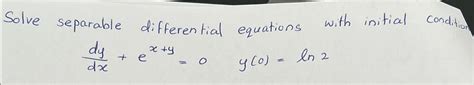 Solve separable differential equations with initial condition
dy/dx + e^{x+y} = 0 y(0) = ln 2